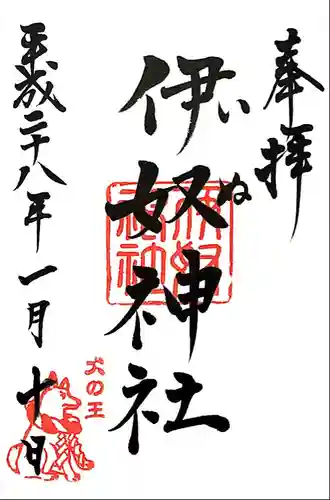 奉拝
伊奴神社
いぬ
平成二十八年一月十日
犬の王